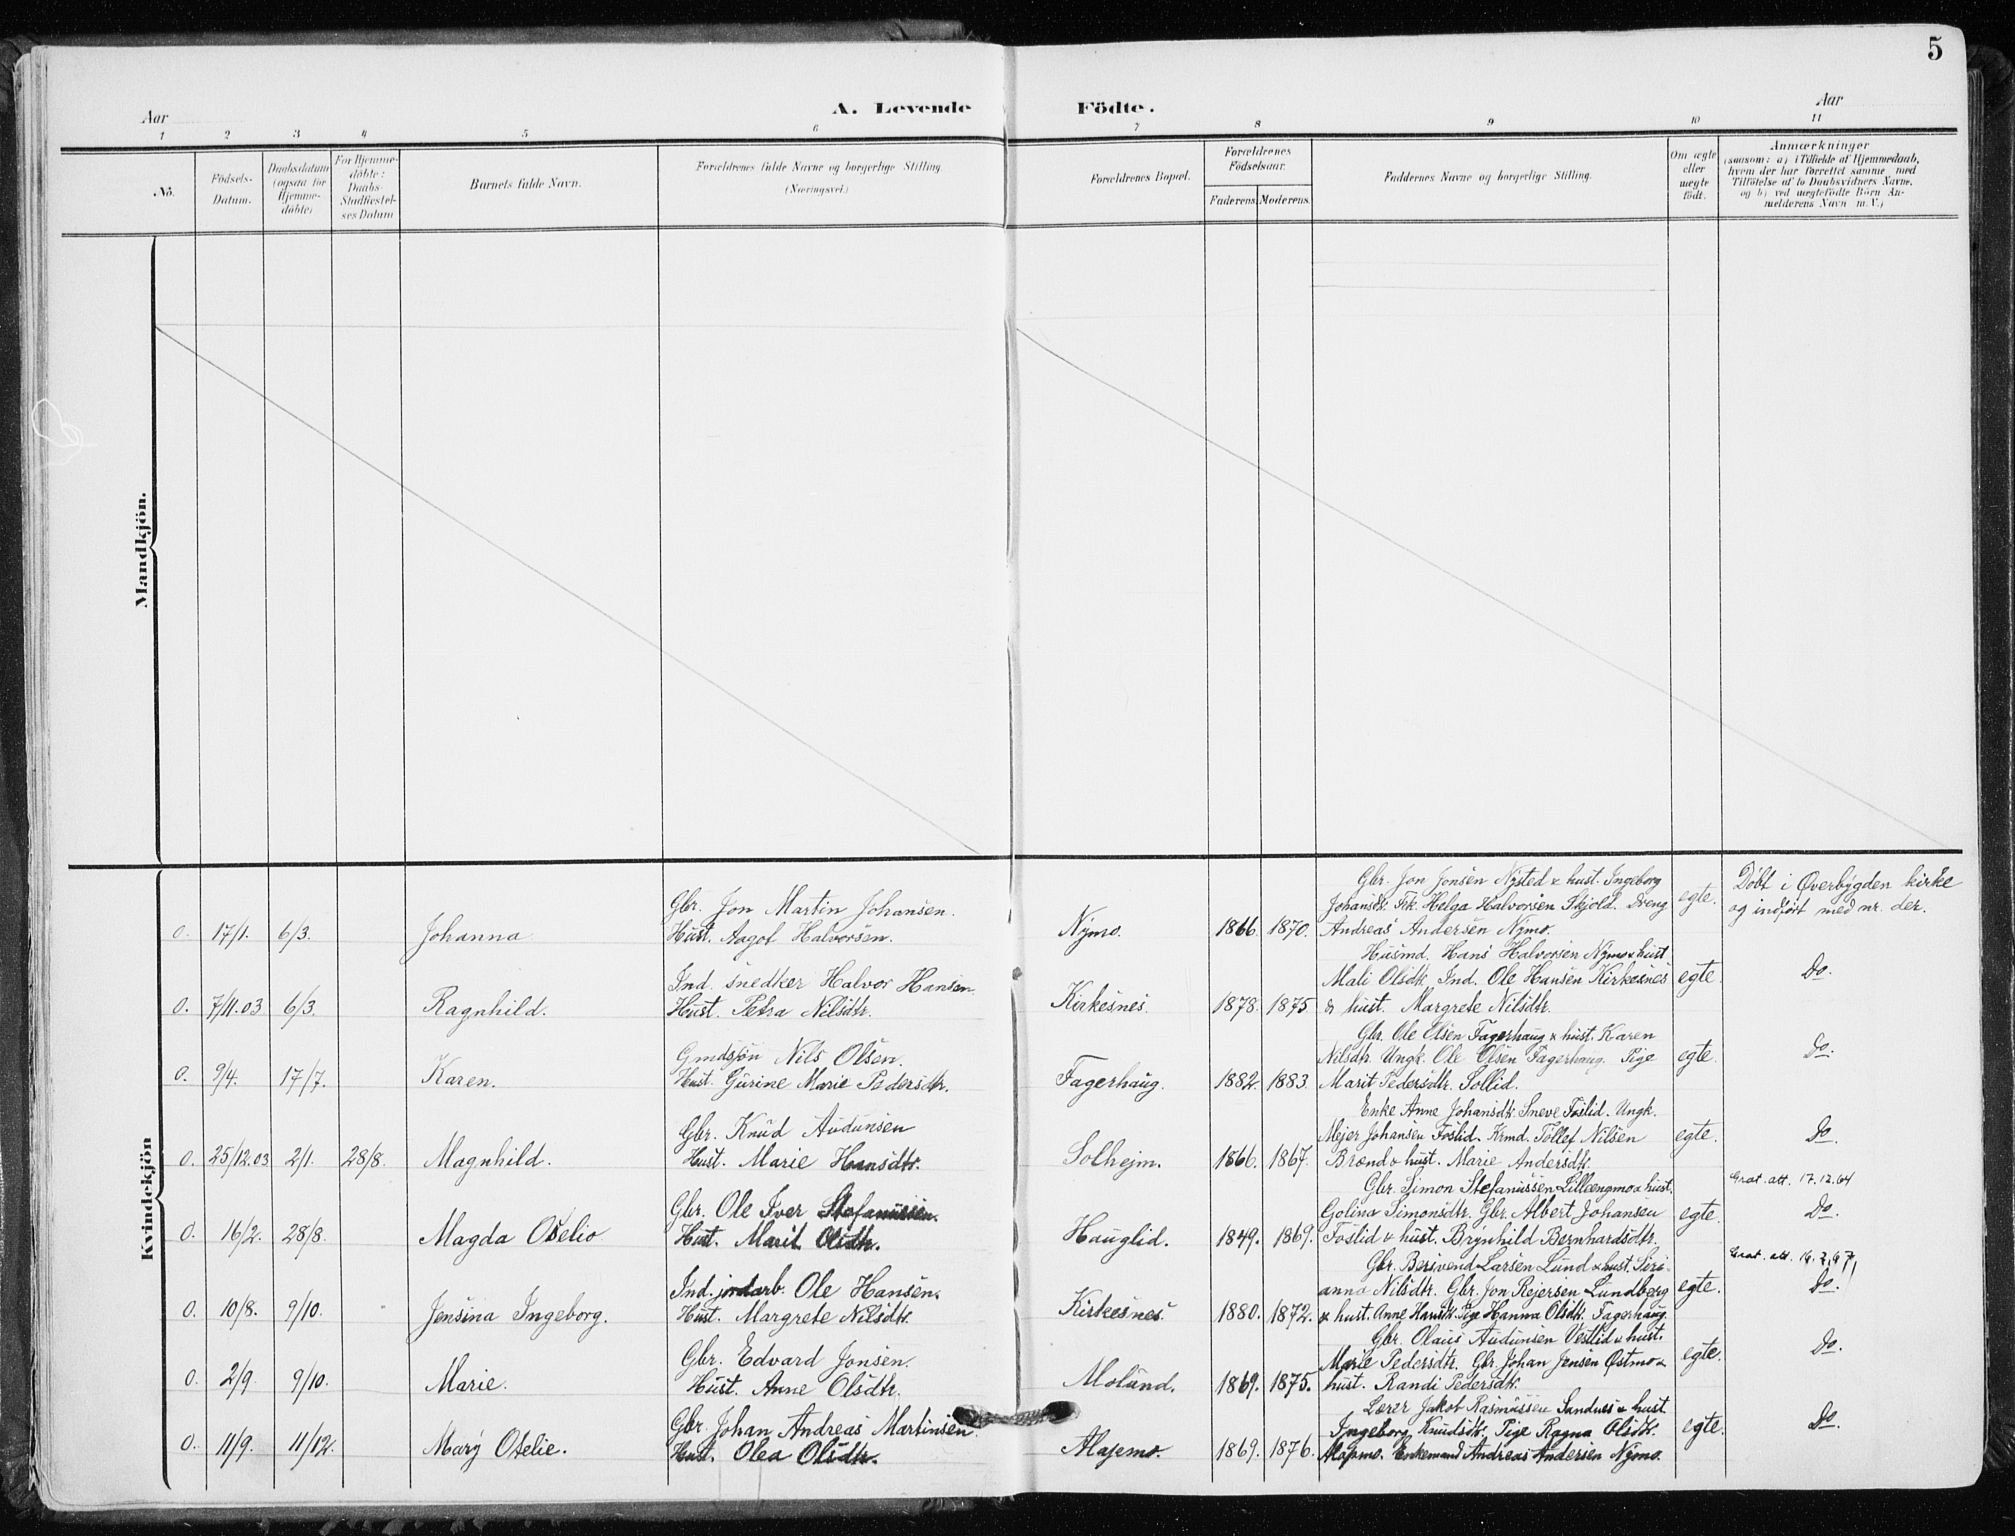 5
A. Levende Födte.
Aar
Aar
1 2 3 4 5 6 7 8 9 10 11
No.
Födsels-Datum.
Daabsdatum (ogsaa for Hjemme-döbte)
For Hjemme-döbte: Daabs-Stadfæstel-ses Datum
Barnets fulde Navn.
Forældrenes fulde Navne og borgerlige Stilling. (Næringsvei.)
Forældrenes Bopæl.
Forældrenes Födselsaar.
Faderens. Moderens.
Faddernes Navne og borgerlige Stilling.
Om ægte eller uægte födt.
Anmærkninger
(saasom: a) i Tilfælde af Hjemmedaab,
hvem der har forrettet samme, med
Tilföielse af to Daabsvidners Navne,
og b) ved uægtefödte Börn An-
melderens Navn m. V.)
Mandkjön.
Kvindekjön
Gbr. Jon Jonsen Nysted & hust. Ingeborg
Gbr. Jon Martin Johansen. Johansdtr. Frk. Helga Halvorsen Skjold. Dreng egte. Döbt i Øverbygden kirke og indført med nr. der.
0. 17/1. 6/3. Johanna Hust. Aagot Halvorsen. Nymo. 1866. 1870. Andreas Andersen Nymo.
Husmd. Hans Halvorsen Nymo & hust
Ind. snedker Halvor Hansen. Mali Olsdtr. Ind. Ole Hansen Kirkesnes egte. Do.
0. 7/11.03 6/3. Ragnhild. Hust. Petra Nilsdtr. Kirkesnes. 1878. 1875 & hust. Margrete Nilsdtr.
Gbr. Ole Olsen Fagerhaug & hust. Karen
Gmdsjön Nils Olsen. Nilsdtr. Ungk. Ole Olsen Fagerhaug. Pige egte. Do.
0. 9/4. 17/7. Karen. Hust. Gurine Marie Pedersdtr. Fagerhaug. 1882. 1883. Marit Pedersdtr. Sollid.
Enke Anne Johansdtr. Sneve Foslid. Ungk.
Gbr. Knud Audunsen Mejer Johansen Foslid. Krmd. Tollef Nilsen egte. Do
0. 25/12.03 2/1. 28/8. Magnhild. Hust. Marie Hansdtr. Solhejm. 1866. 1867. Brænd & hust. Marie Andersdtr.
Gbr. Simon Stefanussen Lilleengmo & hust. Grat. att. 17.12.64
Gbr. Ole Iver Stefanussen. Golina Simonsdtr. Gbr. Albert Johansen egte. Do.
0. 16/2. 28/8. Magda Otelio Hust. Marit Olsdtr. Hauglid. 1849. 1869. Foslid & hust. Brynhild Bernhardsdtr.
Gbr. Larsen Lund & hust. Seri-
Ind. jordarb. Ole Hansen. anna Nilsdtr. Gbr. Jon Rejersen Lundberg egte. Do.
0. 10/8. 9/10. Jensina Ingeborg. Hust. Margrete Nilsdtr. Kirkesnes. 1880. 1872. & hust. Anne Hansdtr. Pige Hanna Olsdtr. Fagerhaug.
Gbr. Olaus Audunsen Vestlid & hust.
Gbr. Edvard Jonsen. Marie Pedersdtr. Gbr. Johan Jensen Østmo & egte. Do.
0. 2/9. 9/10. Marie. Hust. Anne Olsdtr. Moland. 1869. 1875. hust. Randi Pedersdtr.
Lærer Jakob Rasmussen Sandnes & hust
Gbr. Johan Andreas Martinsen Ingeborg Knudsdtr. Pige Ragna Olsdtr. egte. Do.
0. 11/9. 11/12. Mary Otelie. Hust. Olea Olsdtr. Alapmo. 1869. 1876. Alapmo. Enkemand Andreas Andersen Nymo.